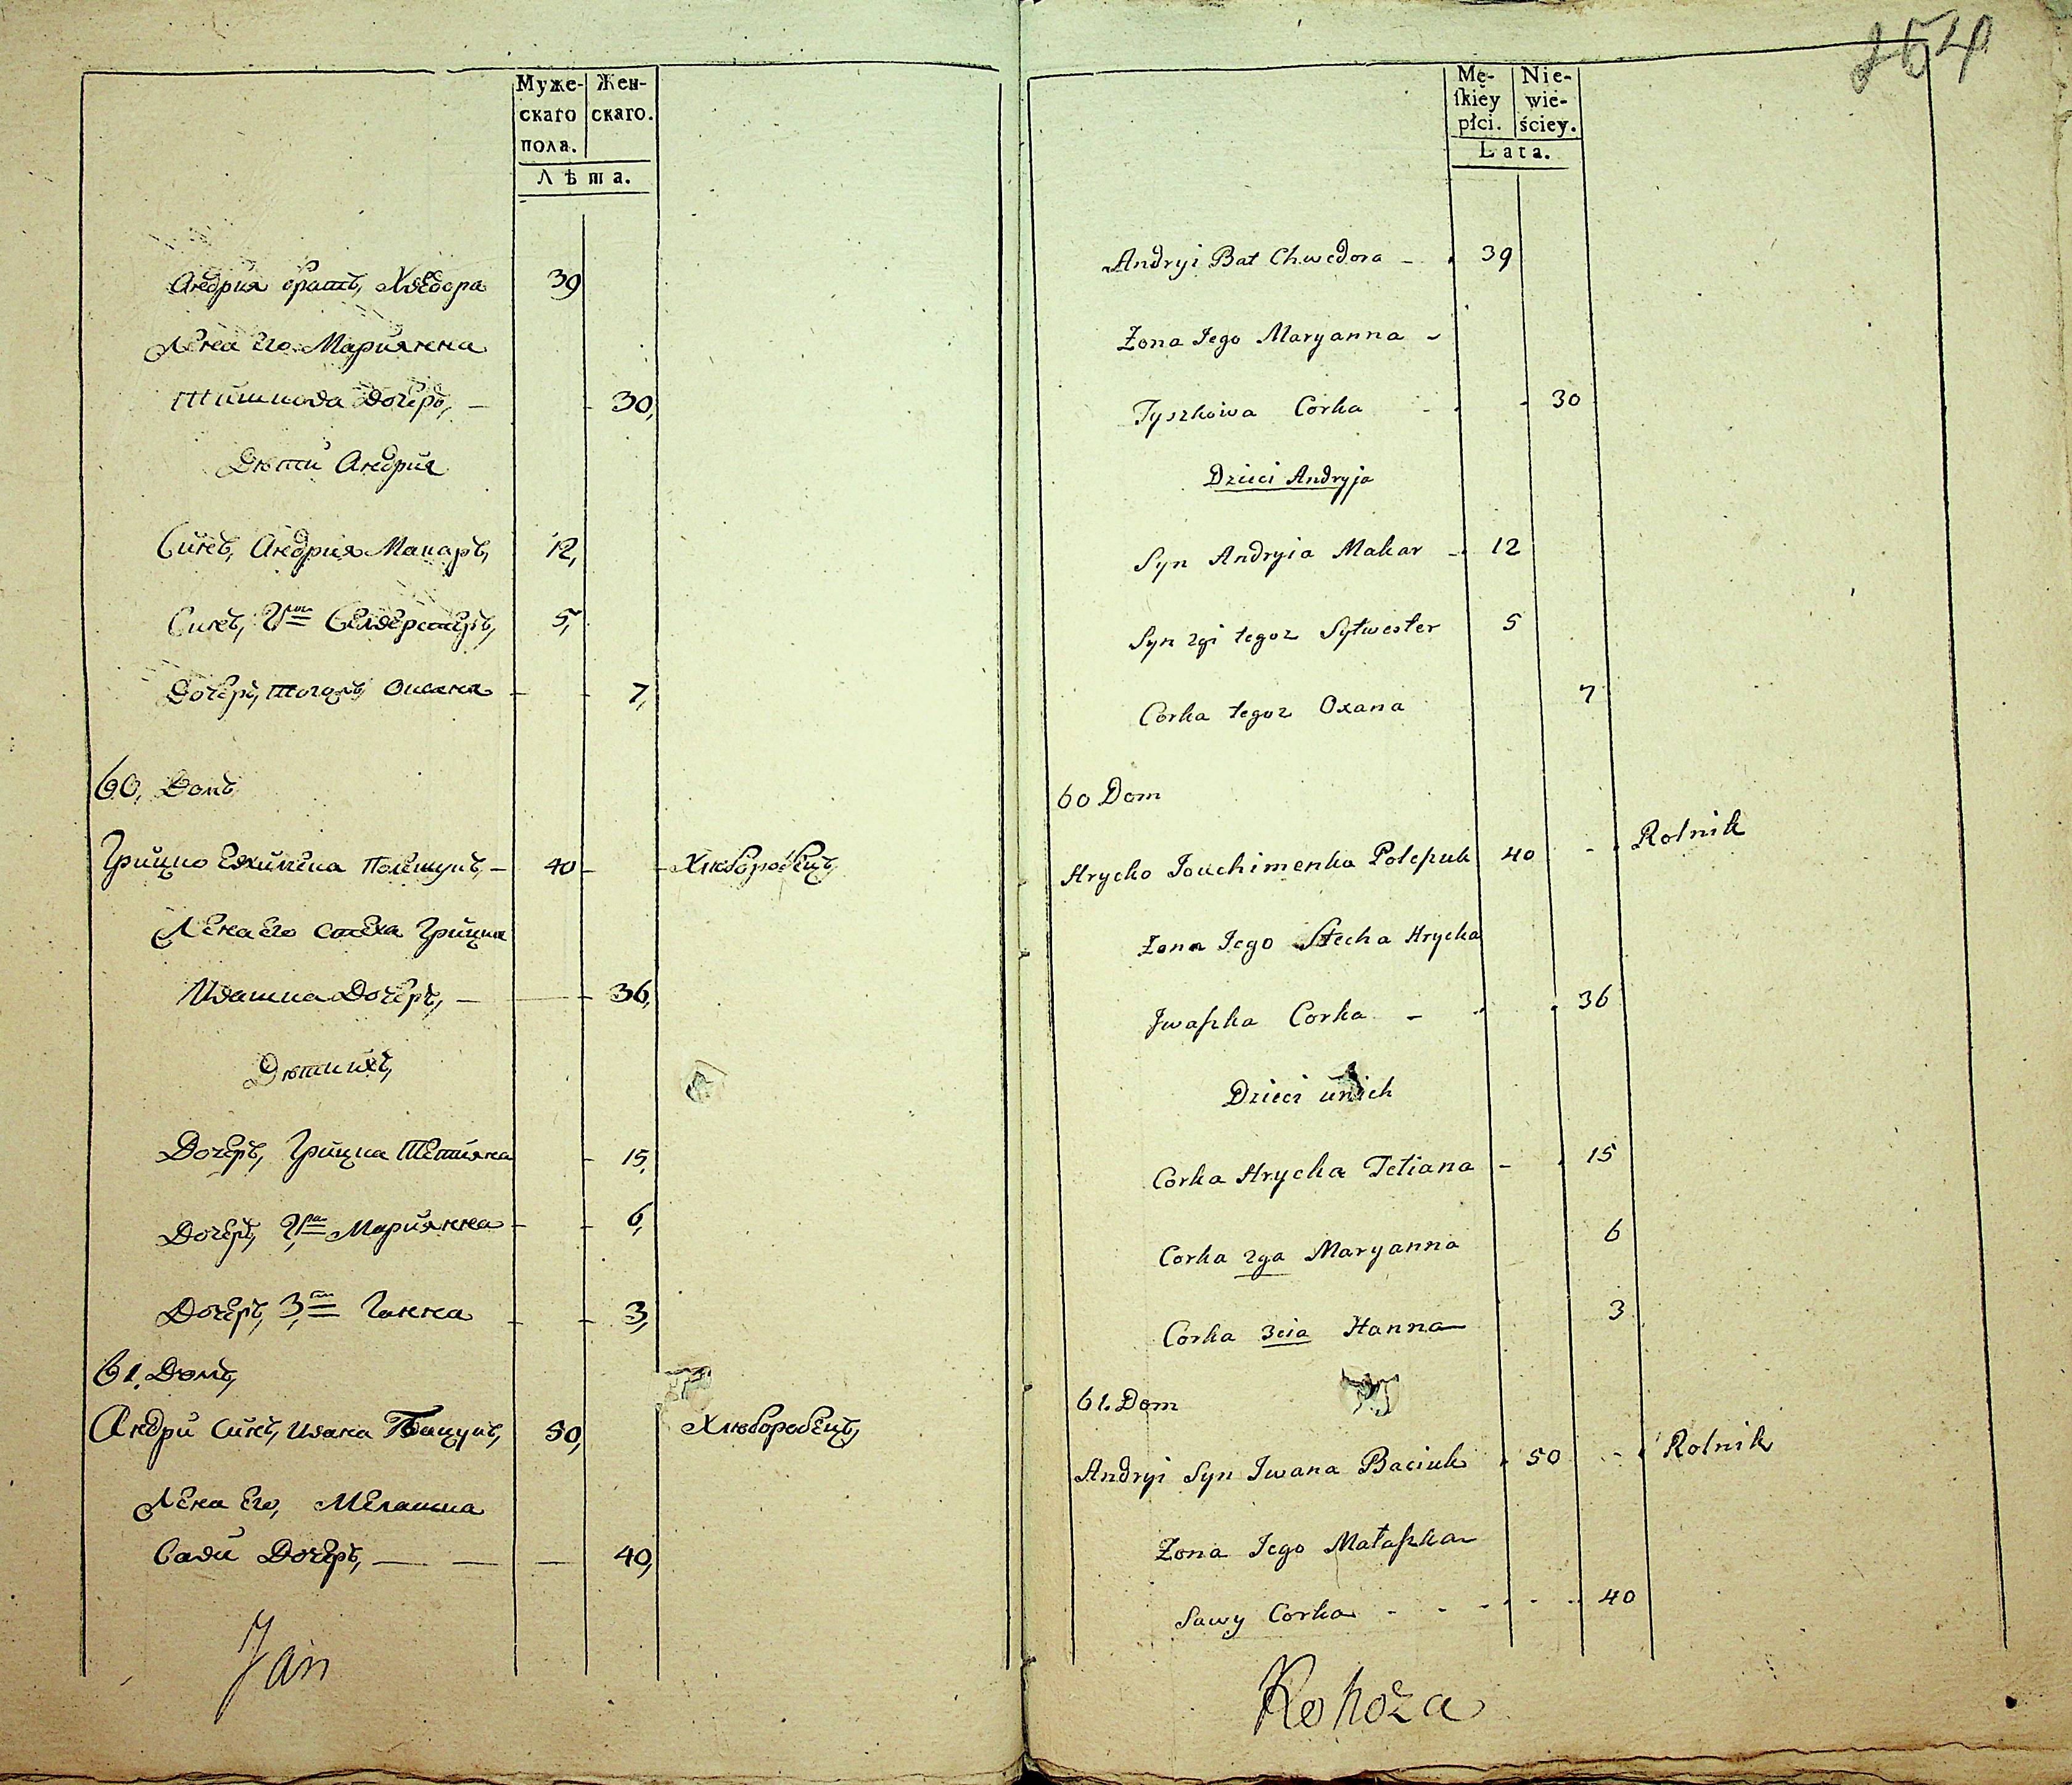 Муже-
скаго
пола.
Жен-
скаго.
Лѣта.
Андрия братъ, Хведора 39
Жена Его Марианна
Тишкова Дочеръ, — 30,
Дѣти Андрия
Синъ, Андрия Макаръ, 12,
Синъ, 2й Селверстеръ, 5,
Дочеръ, тогожъ Оксана - - 7,
60, Домъ
Грицко Евхимека Полешукъ, — 40 - - Хлѣборобецъ,
Жена Его Стеха Грицка
Ивашка Дочеръ, — — - 36,
Дѣти ихъ,
Дочеръ, Грицка Тетияна - 15,
Дочеръ, 2га Мариянна - - 6,
Дочеръ, 3та Ганна - - 3,
61. Домъ,
Андри Синъ, Ивана Бацукъ, 50, Хлѣборобецъ,
Жена Его, Мелашка
Сави Дочеръ, — — — 40,
Jan
254
Mę-
ſkiéy
płci.
Nie-
wie-
ściey.
Lata.
Andryi Bat Chwedora - . 39
Żona Jego Maryanna -
Tyszkowa Corka - . . 30
Dzieci Andryja
Syn Andryia Makar - . 12
Syn 2gi tegoz Sylwester 5
Corka tegoz Oxana 7
60 Dom
Hrycko Jouchimenka Poleſzuk 40 - . Rolnik
Żona Jego Stecha Hrycka
Jwaſzka Corka - . . 36
Dzieci u nich
Corka Hrycka Tetiana - . 15
Corka 2ga Maryanna 6
Corka 3cia Hanna 3
61. Dom
Andryi Syn Jwana Baciuk . 50 - . Rolnik
Żona Jego Małaſzka
Sawy Corka - - - - - 40
Rohoza